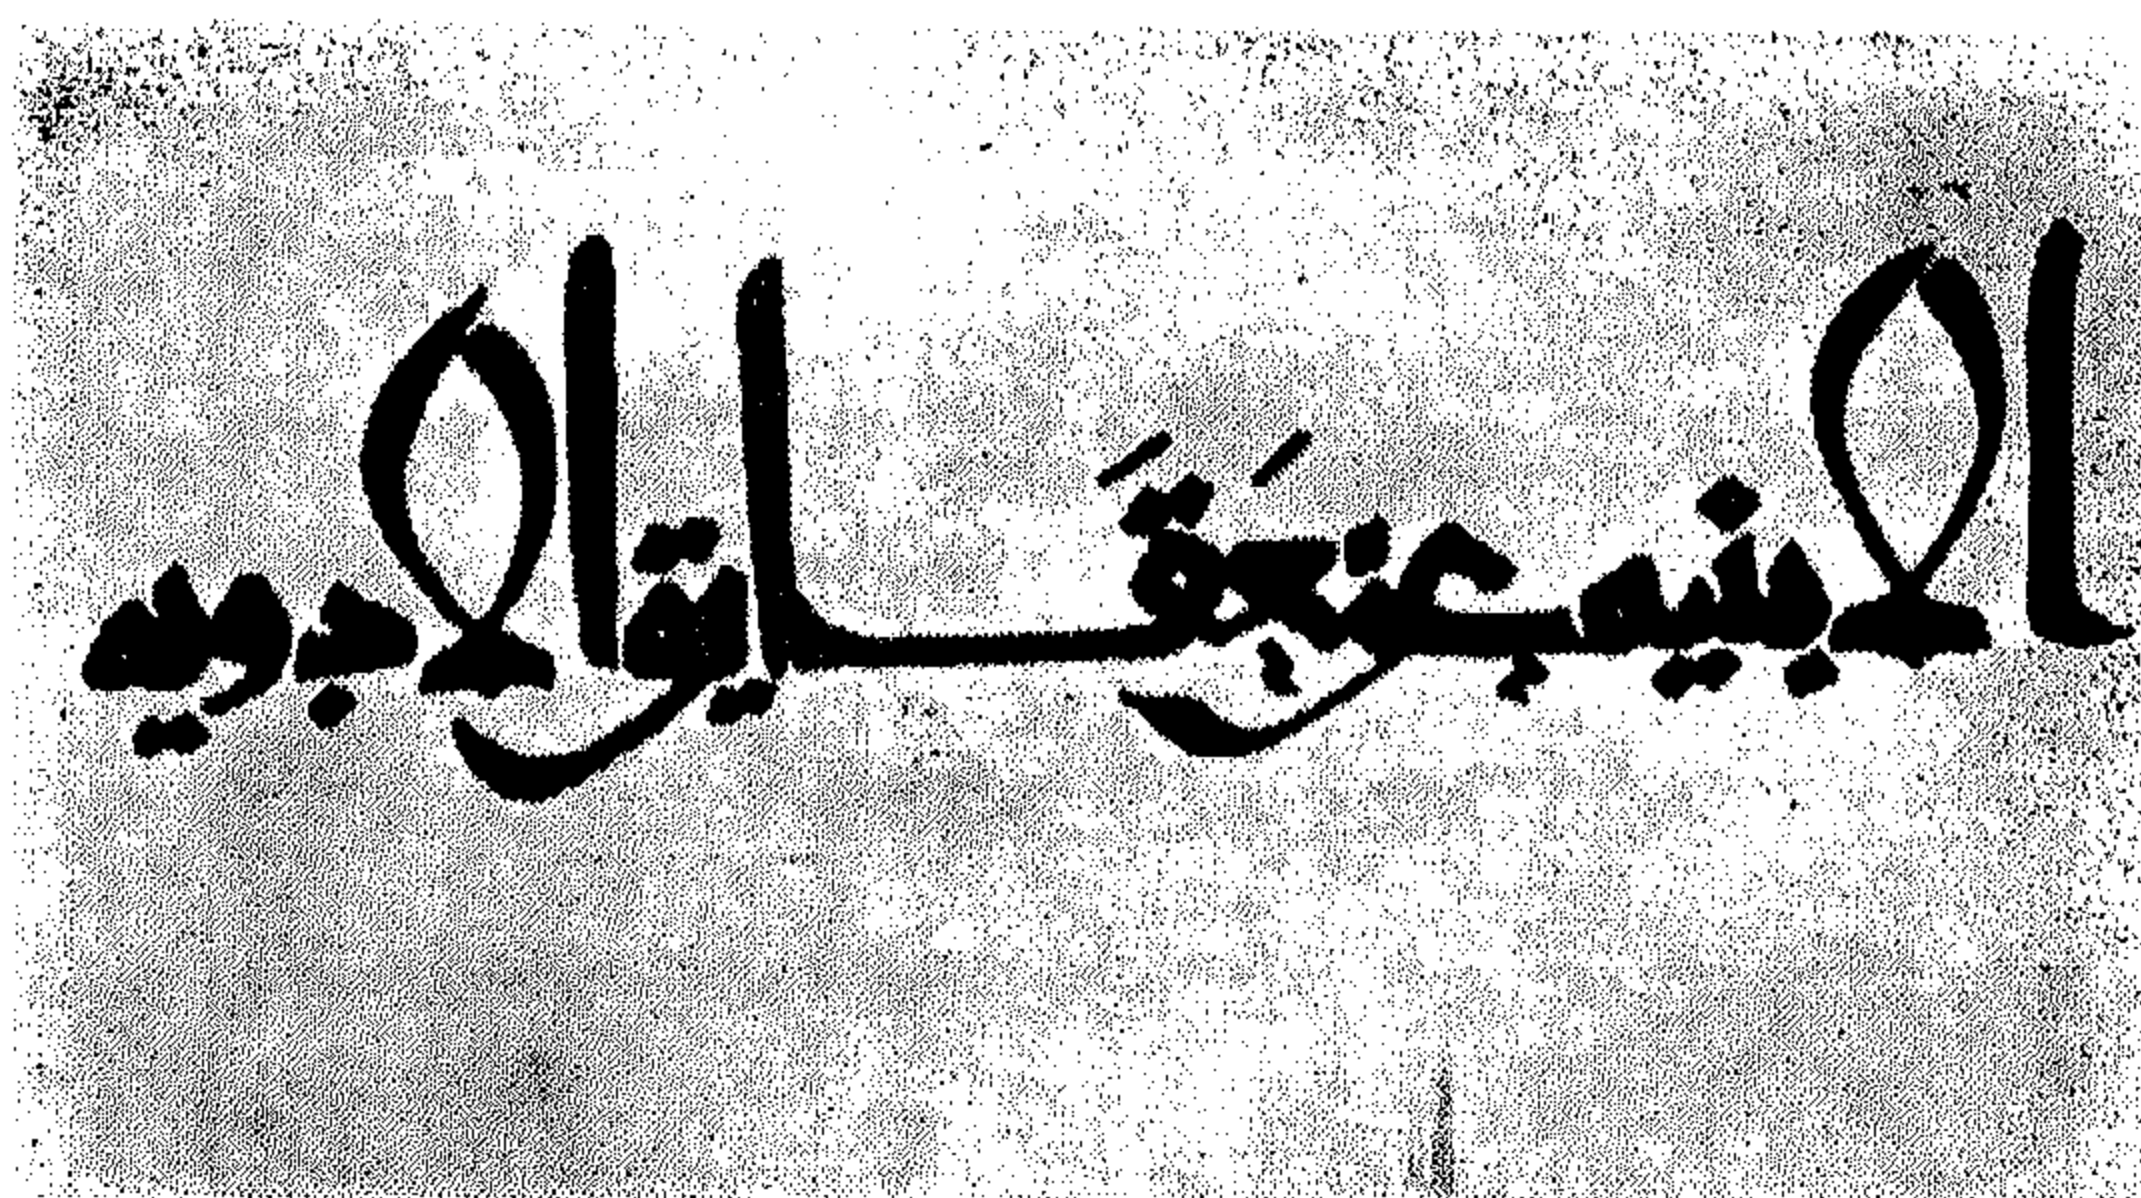 الابنيه عن حَقَايق الادويه